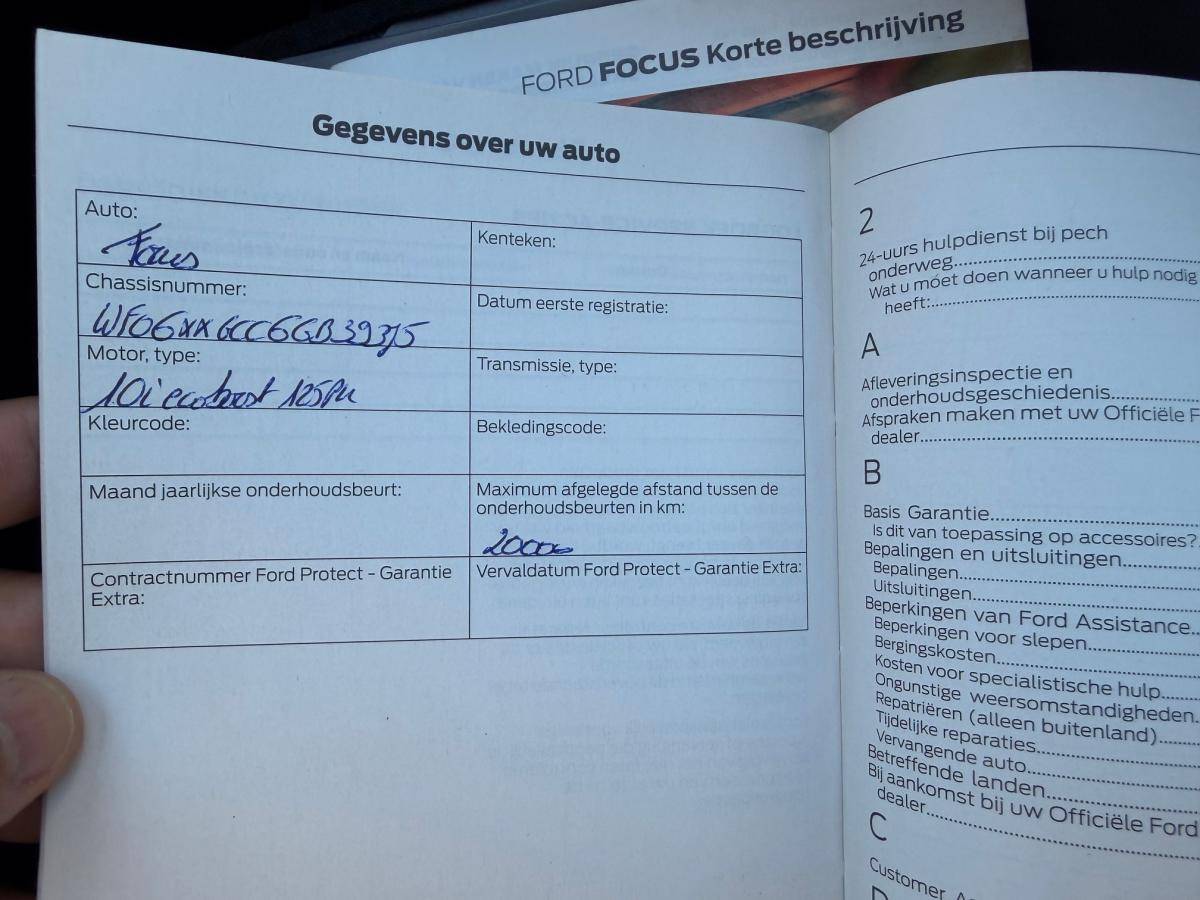 FORD FOCUS Korte beschrijving
Gegevens over uw auto
Auto:
Focus
Kenteken:
Chassisnummer:
WF06XX6CC6GB39375
Datum eerste registratie:
Motor, type:
1.0i ecoboost 125PK
Transmissie, type:
Kleurcode:
Bekledingscode:
Maand jaarlijkse onderhoudsbeurt:
Maximum afgelegde afstand tussen de
onderhoudsbeurten in km:
20000
Contractnummer Ford Protect - Garantie
Extra:
Vervaldatum Ford Protect - Garantie Extra:
2
24-uurs hulpdienst bij pech
onderweg
Wat u móet doen wanneer u hulp nodig
heeft:
A
Afleveringsinspectie en
onderhoudsgeschiedenis
Afspraken maken met uw Officiële F
dealer
B
Basis Garantie
Is dit van toepassing op accessoires?
Bepalingen en uitsluitingen
Bepalingen
Uitsluitingen
Beperkingen van Ford Assistance
Beperkingen voor slepen
Bergingskosten
Kosten voor specialistische hulp
Ongunstige weersomstandigheden
Repatriëren (alleen buitenland)
Tijdelijke reparaties
Vervangende auto
Betreffende landen
Bij aankomst bij uw Officiële Ford
dealer
C
Customer